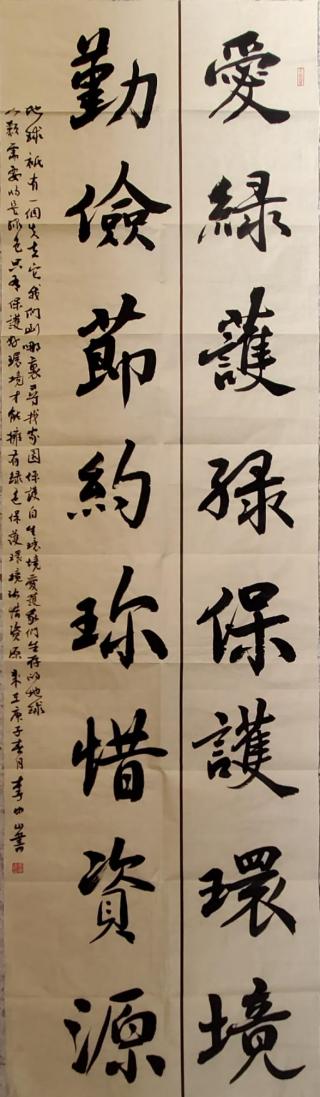 愛緑護緑保護環境
勤儉節約珎惜資源
地球祇有一個失去它我們到哪裏尋找家園保護自然環境愛護我們生存的地球
人類需要的是綠色只有保護好環境才能擁有綠色保護環境珎惜資源 庚子春月 李 山書